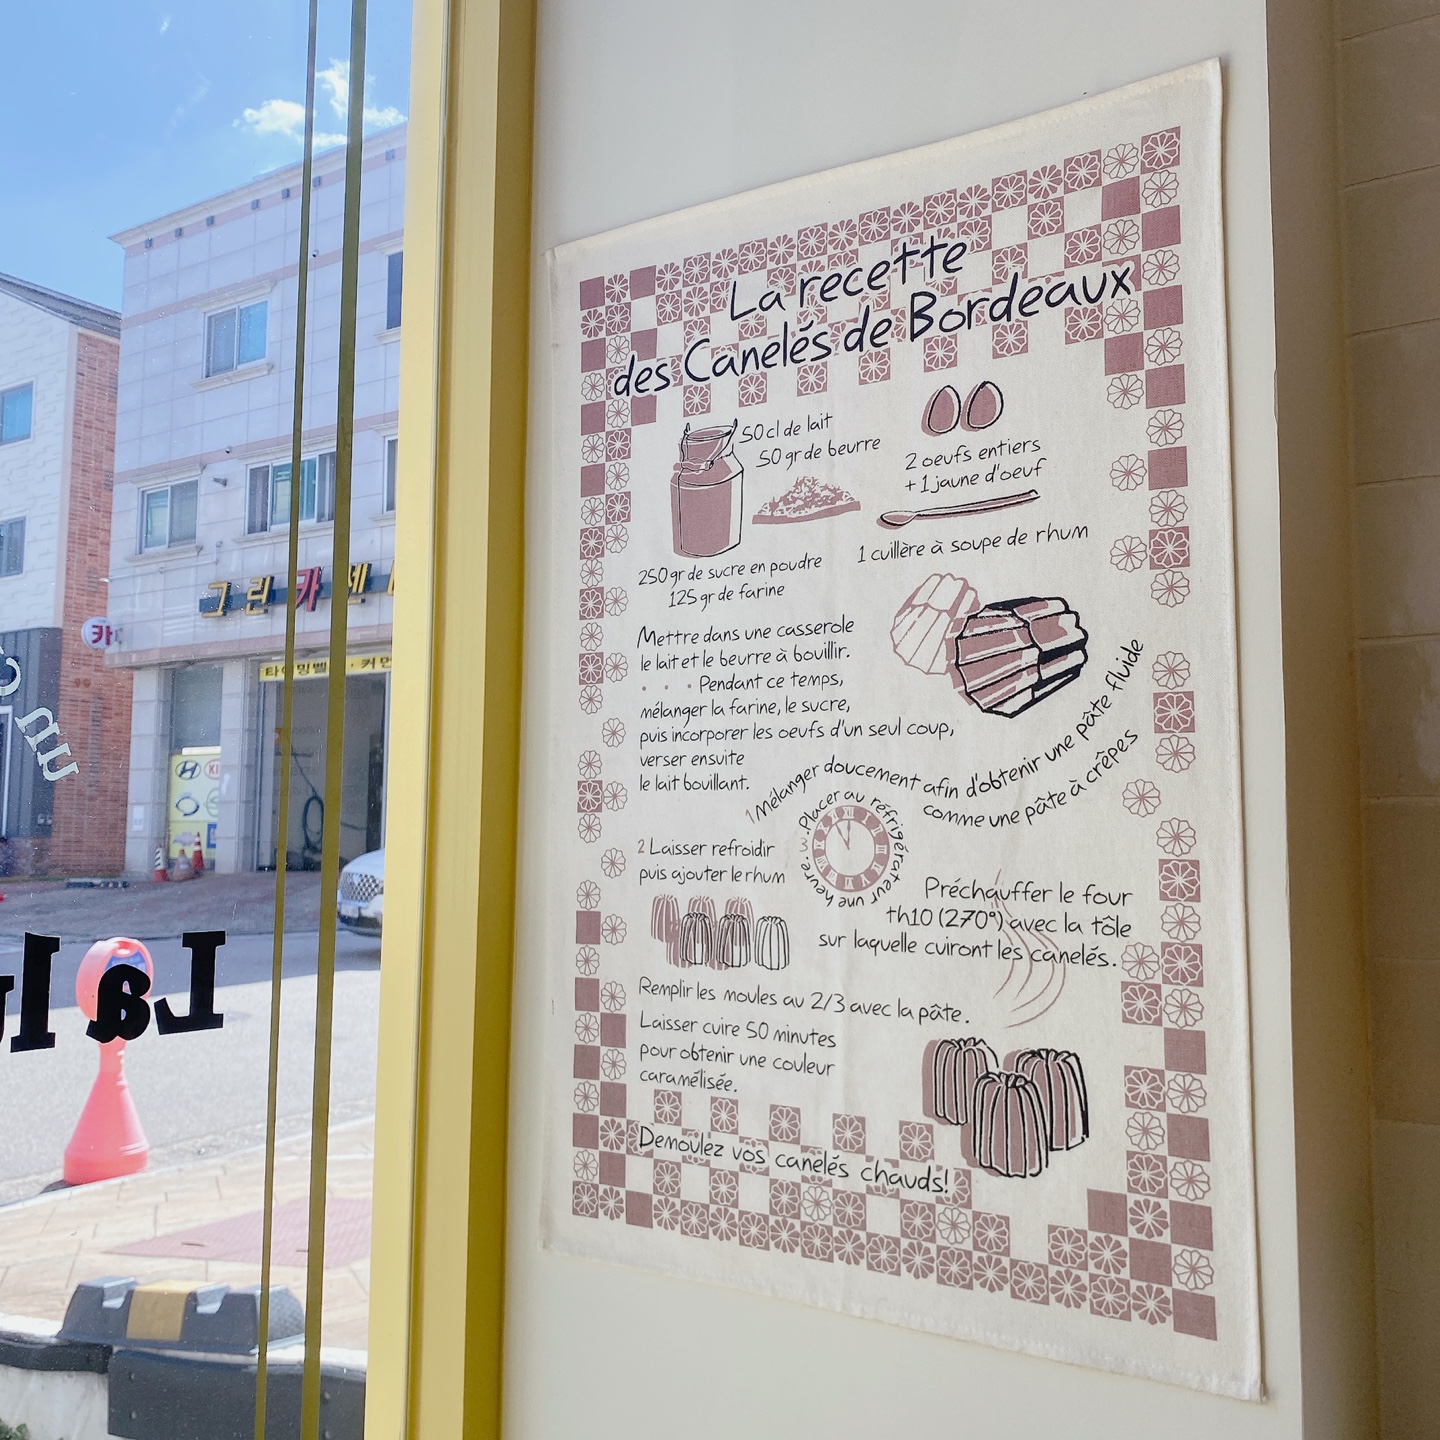 La recette
des Canelés de Bordeaux
50 cl de lait
50 gr de beurre
2 oeufs entiers
+ 1 jaune d'oeuf
1 cuillère à soupe de rhum
250 gr de sucre en poudre
125 gr de farine
Mettre dans une casserole
le lait et le beurre à bouillir.
. . . Pendant ce temps,
mélanger la farine, le sucre,
puis incorporer les oeufs d'un seul coup,
verser ensuite
le lait bouillant.
1 Mélanger doucement afin d'obtenir une pâte fluide
comme une pâte à crêpes
2 Laisser refroidir
puis ajouter le rhum
3. Placer au réfrigérateur une heure.
Préchauffer le four
th10 (270°) avec la tôle
sur laquelle cuiront les canelés.
Remplir les moules au 2/3 avec la pâte.
Laisser cuire 50 minutes
pour obtenir une couleur
caramélisée.
Demoulez vos canelés chauds!
그린카센
카
타이밍벨
La